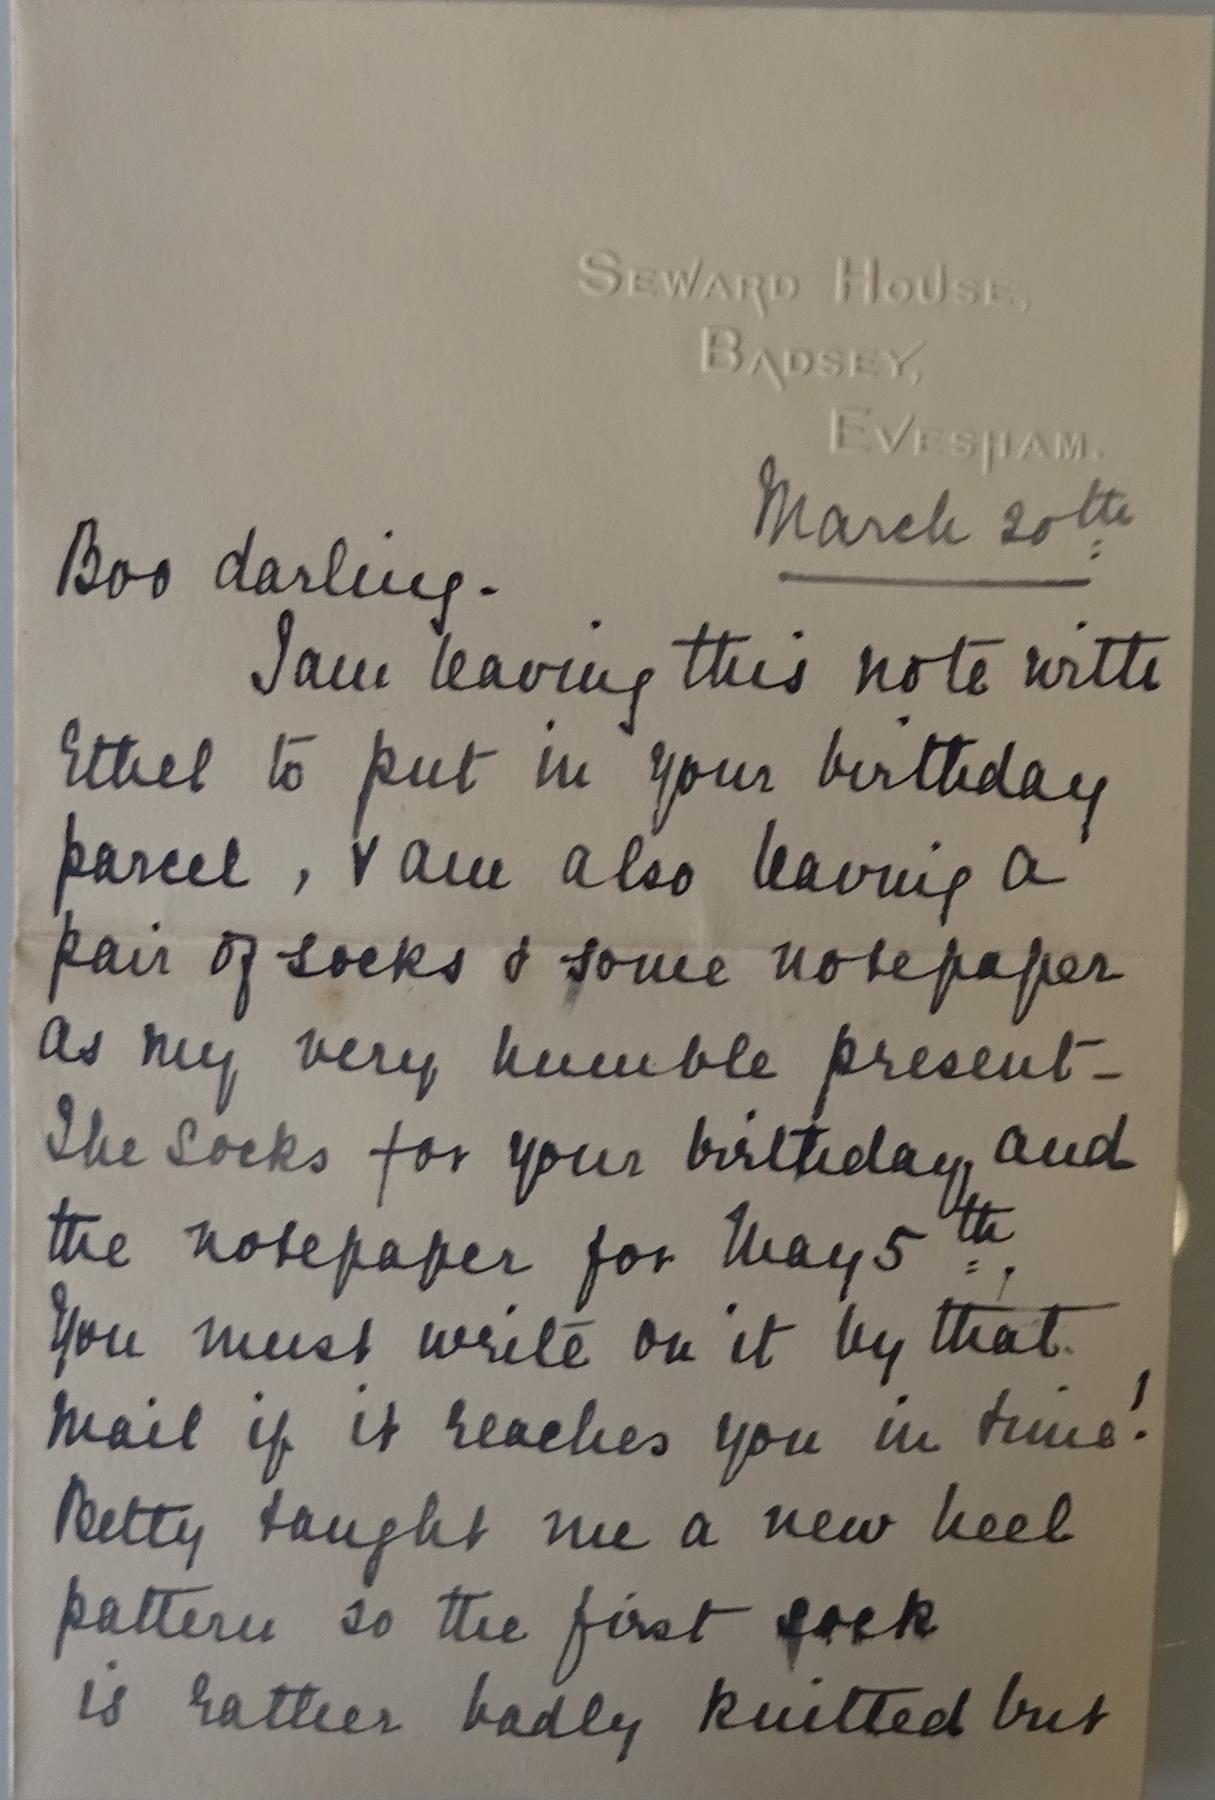 SEWARD HOUSE,
BADSEY,
EVESHAM.
March 20th
Boo darling.
I am leaving this note with
Ethel to put in your birthday
parcel, & am also leaving a
pair of socks & some notepaper
as my very humble present -
The socks for your birthday, and
the notepaper for May 5th.
You must write on it by that
mail if it reaches you in time!
Betty taught me a new heel
pattern so the first sock
is rather badly knitted but